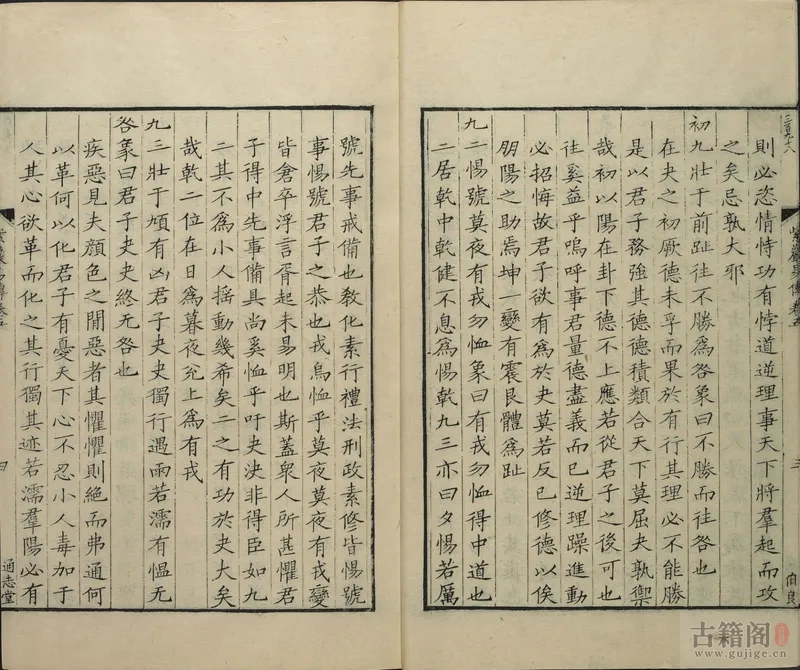 三百九十六
則必恣情恃功有悖道逆理事天下將羣起而攻
之矣忌孰大邪
初九壯于前趾往不勝爲咎象曰不勝而往咎也
在夬之初厥德未孚而果於有行其理必不能勝
是以君子務強其德德積類合天下莫屈夬孰禦
哉初以陽在卦下德不上應若從君子之後可也
往奚益乎嗚呼事君量德盡義而已逆理躁進動
必招悔故君子欲有爲於夬莫若反已修德以俟
朋陽之助焉坤一變有震艮體爲趾
九二惕號莫夜有戎勿恤象曰有戎勿恤得中道也
二居乾中乾健不息爲惕乾九三亦曰夕惕若厲
紫巖易傳卷五
三
伯良
號先事戒備也敎化素行禮法刑政素修皆惕號
事惕號君子之恭也戎烏恤乎莫夜莫夜有戎變
皆倉卒浮言胥起未易明也斯蓋衆人所甚懼君
子得中先事備具尚奚恤乎吁夬決非得臣如九
二其不爲小人揺動幾希矣二之有功於夬大矣
哉乾二位在日爲暮夜兊上爲有戎
九三壯于頄有凶君子夬夬獨行遇雨若濡有愠无
咎象曰君子夬夬終无咎也
疾惡見夫顔色之閒惡者其懼懼則絕而弗通何
以革何以化君子有憂天下心不忍小人毒加于
人其心欲革而化之其行獨其迹若濡羣陽必有
紫巖易傳卷五
四
通志堂
古籍阁
www.gujige.cn